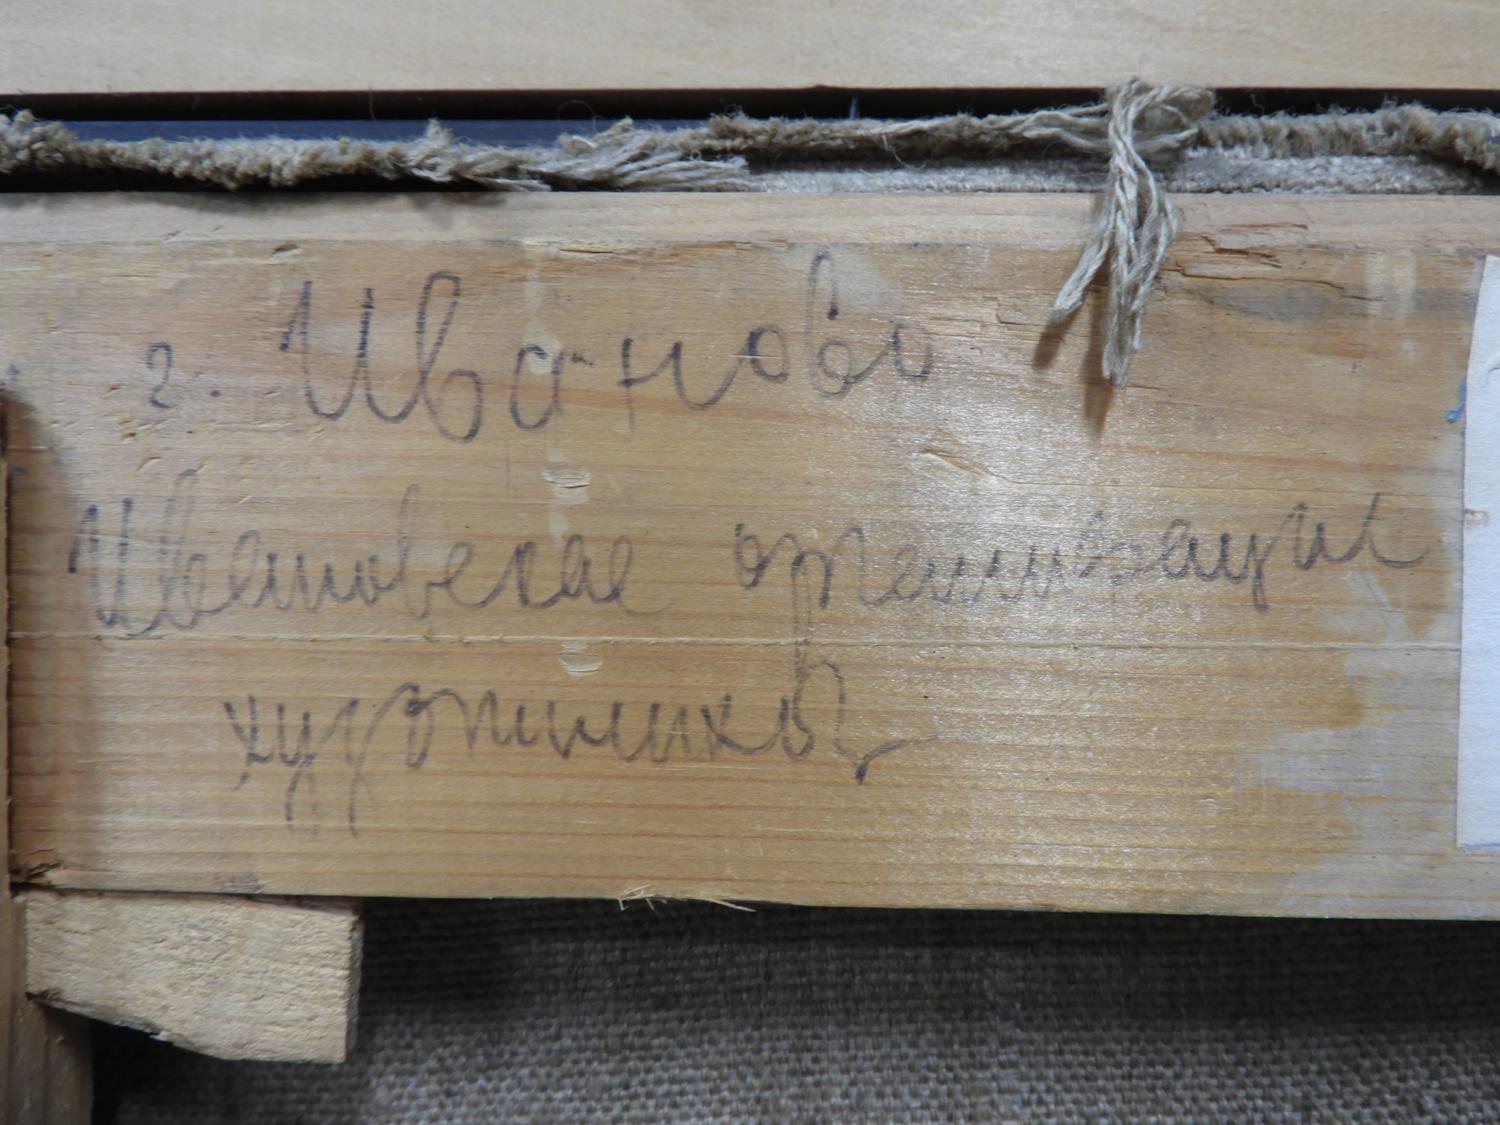 г. Иваново
Ивановская организация
художников